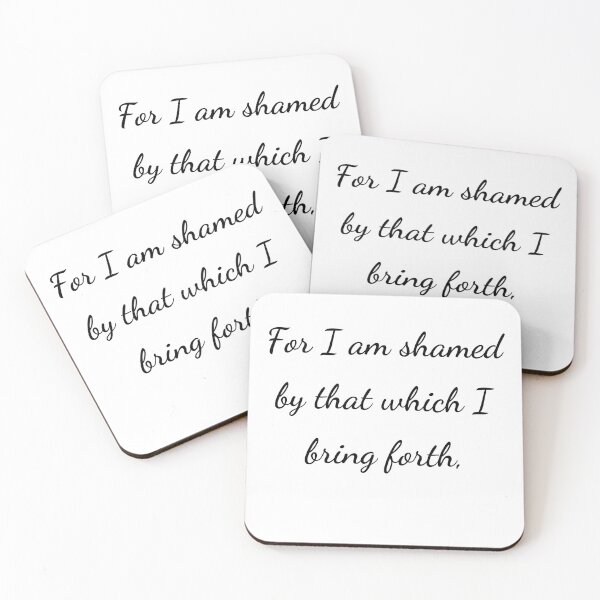 For I am shamed
by that which
For I am shamed
by that which I
bring forth,
For I am shamed
by that which I
bring
For I am shamed
by that which I
bring forth,